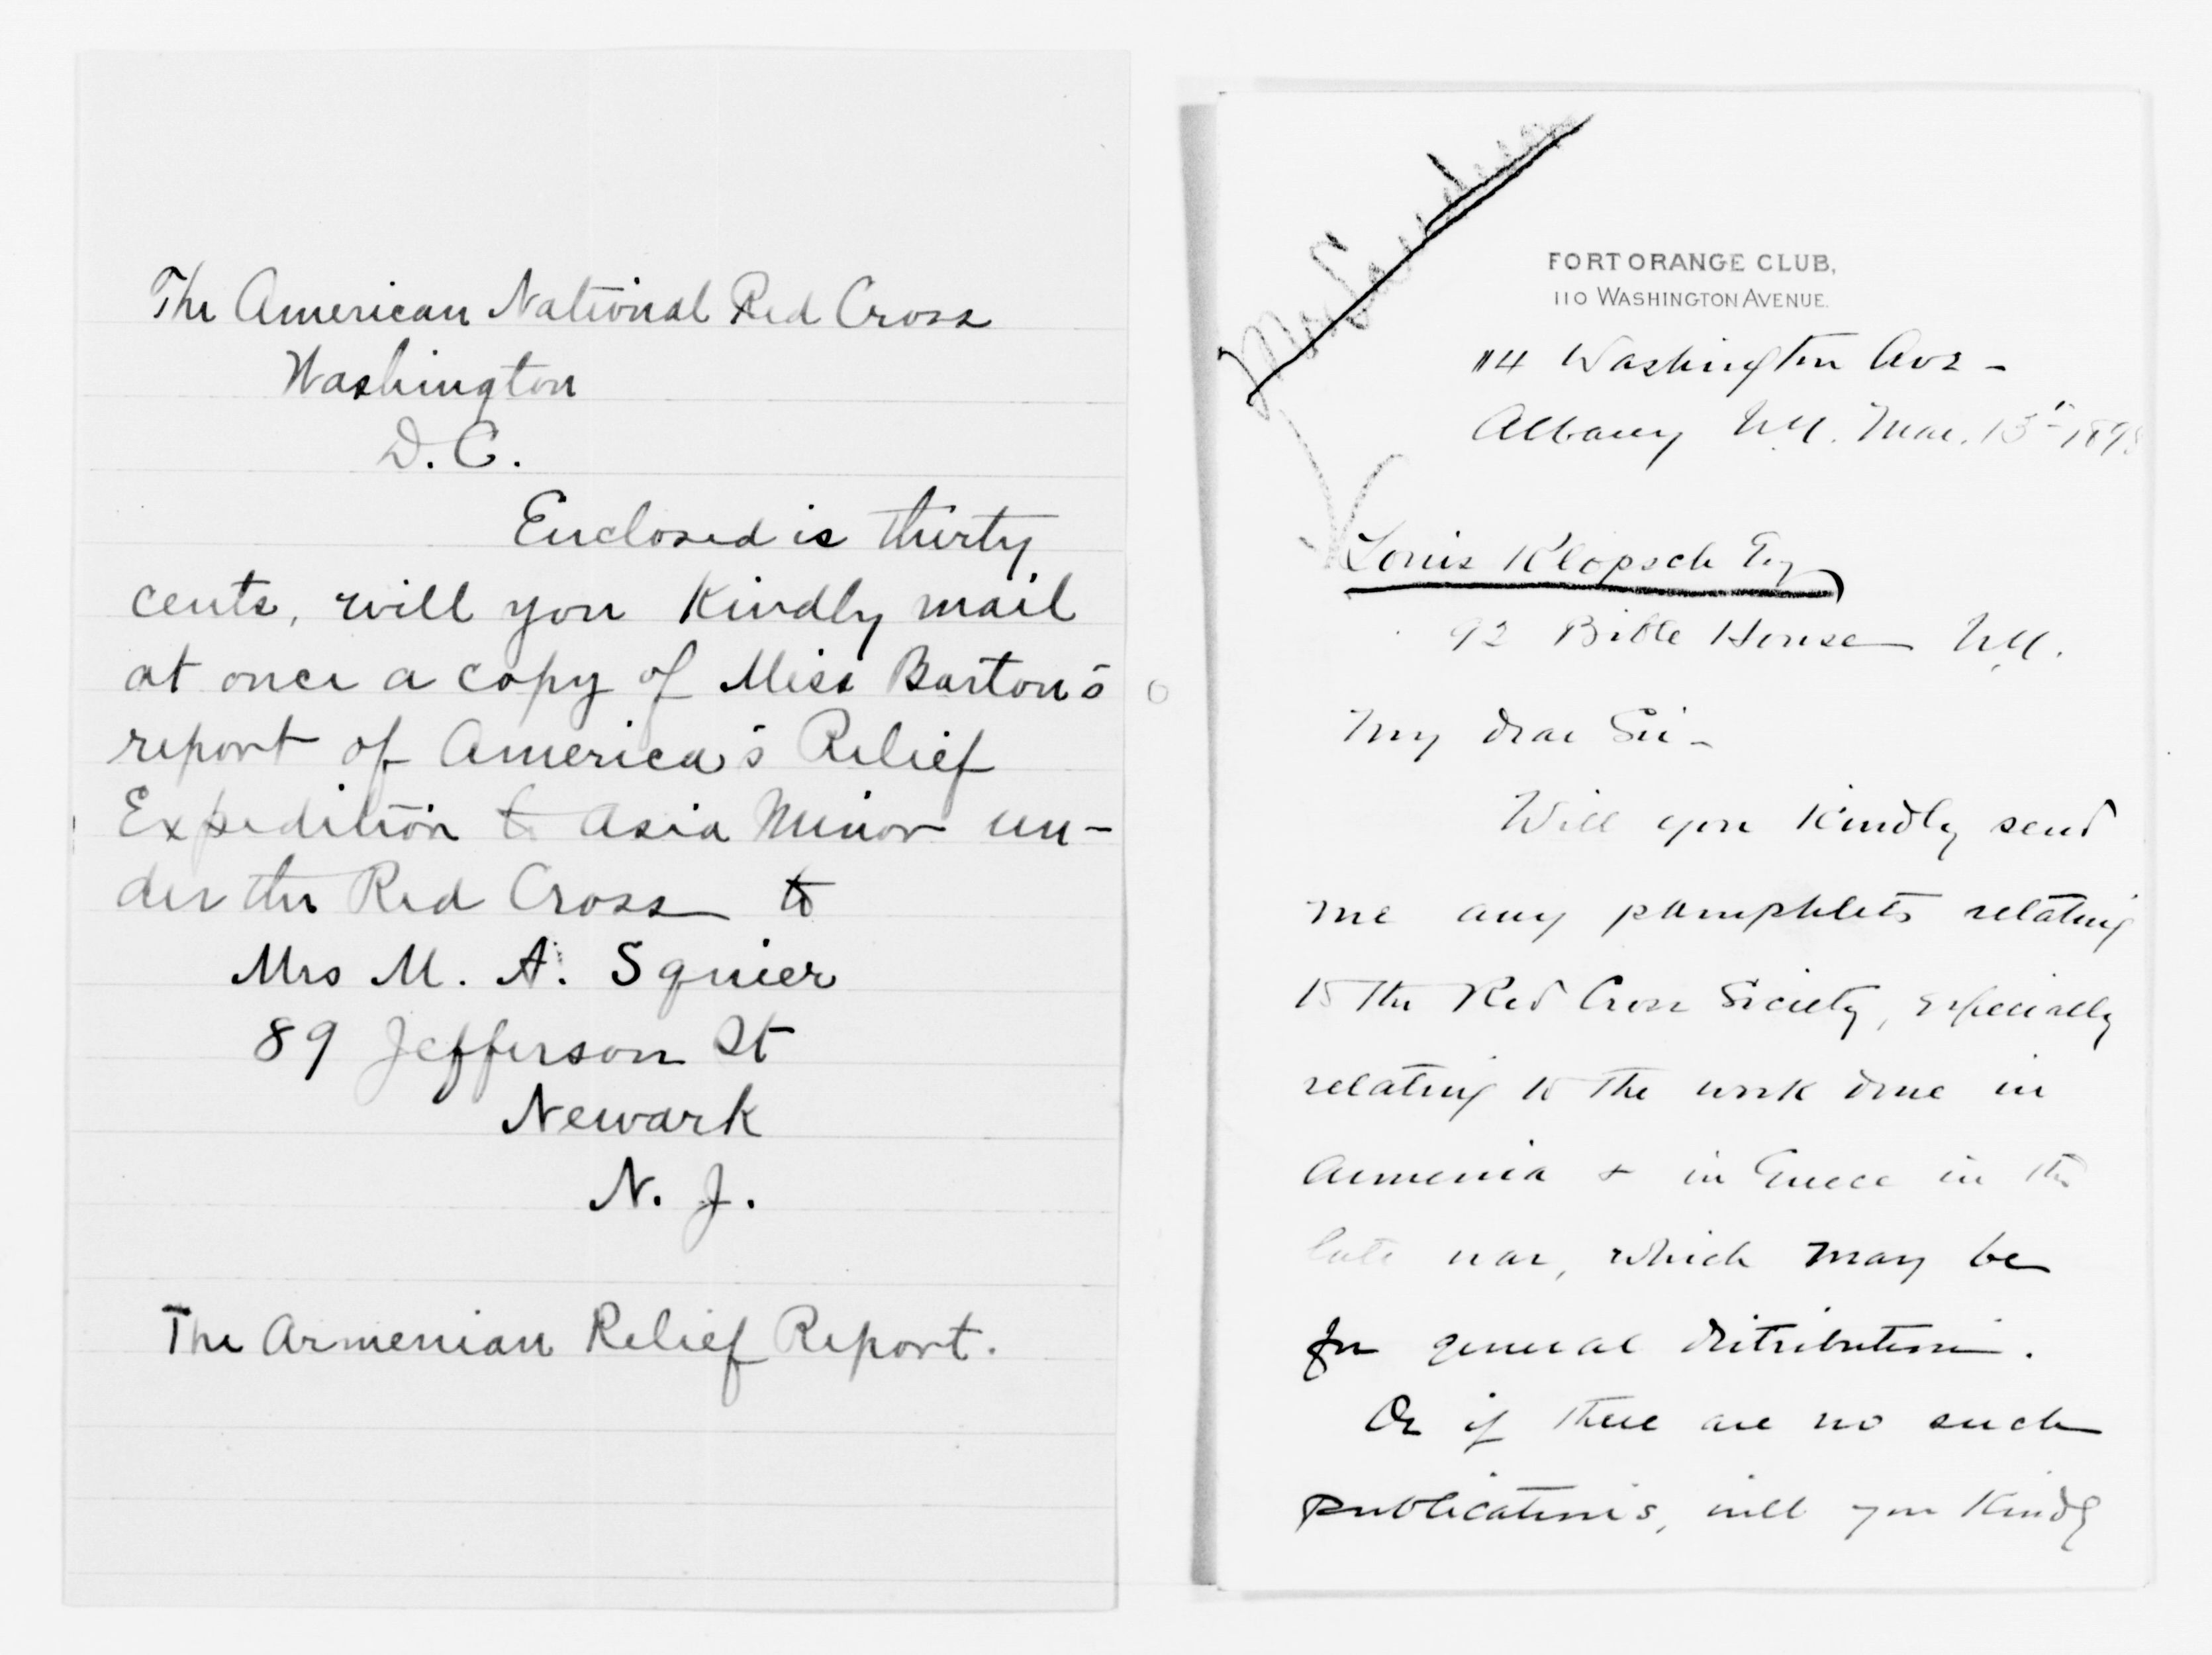 The American National Red Cross
Washington
D.C.
Enclosed is thirty
cents, will you kindly mail
at once a copy of Miss Barton's
report of America's Relief
Expedition to Asia Minor un-
der the Red Cross to
Mrs M. A. Squier
89 Jefferson St
Newark
N. J.
The Armenian Relief Report.
FORT ORANGE CLUB,
110 WASHINGTON AVENUE.
114 Washington Ave -
Albany N.Y. Mar. 15th 189
Louis Klopsch Esq
92 Bible House N.Y.
My dear Sir -
Will you kindly send
me any pamphlets relating
to the Red Cross Society, especially
relating to the work done in
Armenia & in Greece in the
late war, which may be
for general distribution.
Or if there are no such
publications, will you kindly